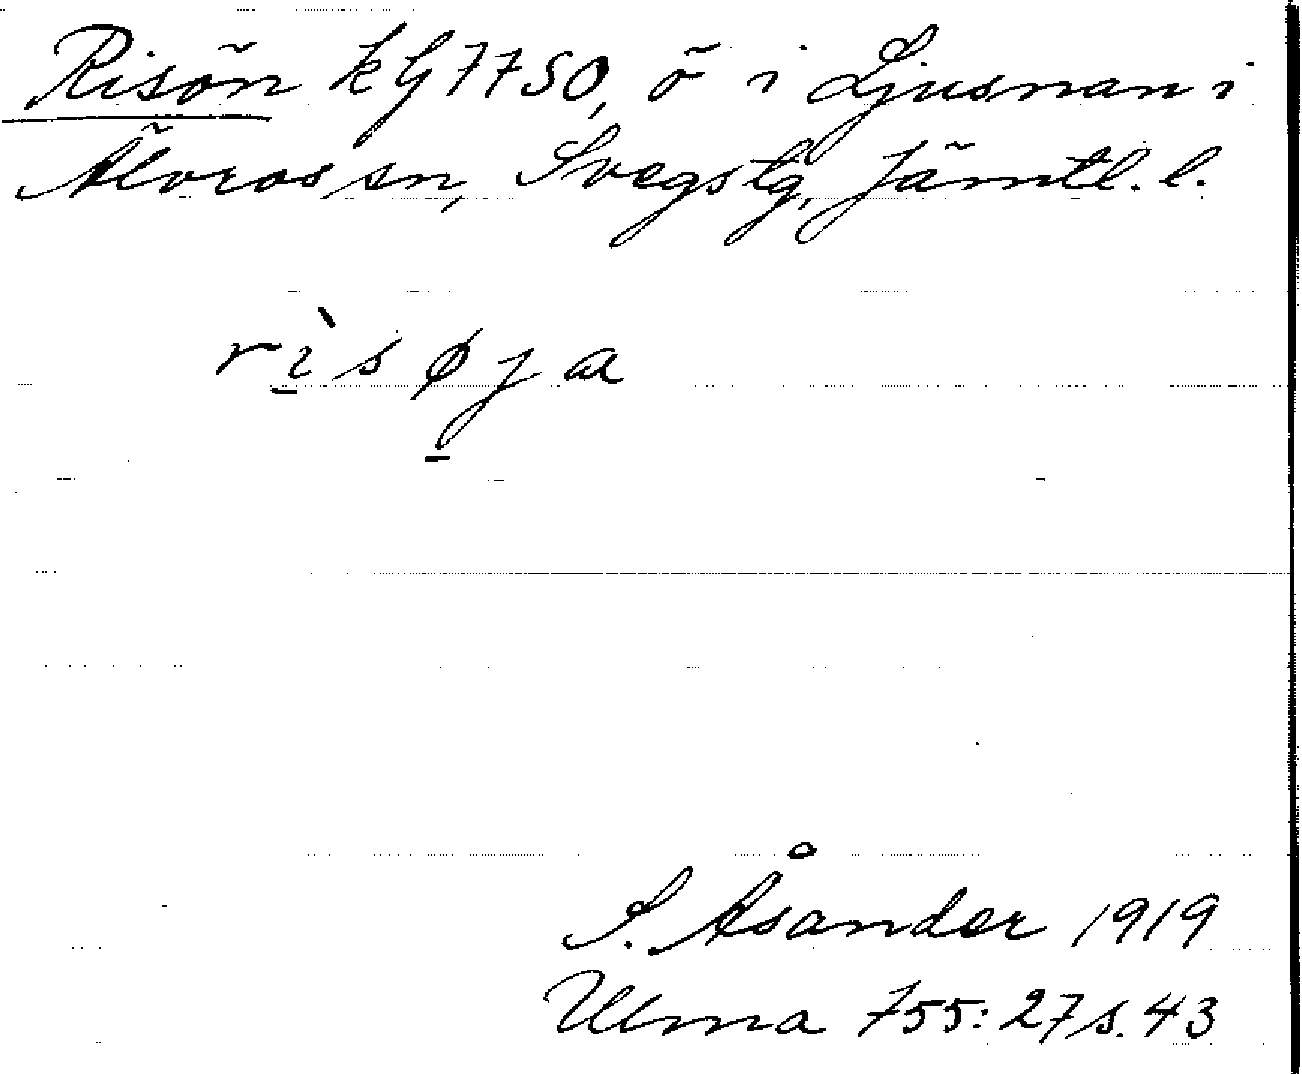 Risön kG7750, ö i Ljusnan i
Älvros sn, Svegs tg, Jämtl. l.
rìsøja
S. Åsander 1919
Ulma 755:27 s. 43